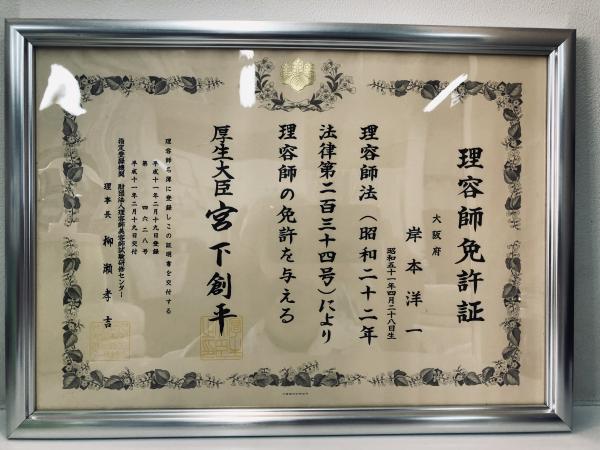 理容師免許証
大阪府
岸本洋一
昭和五十一年四月二十八日生
理容師法(昭和二十二年
法律第二百三十四号)により
理容師の免許を与える
厚生大臣 宮下創平
理容師名簿に登録しこの証明書を交付する
平成十一年二月十九日登録
第四六二八号
平成十一年二月十九日交付
指定登録機関 財団法人理容師美容師試験研修センター
理事長 柳瀬孝吉